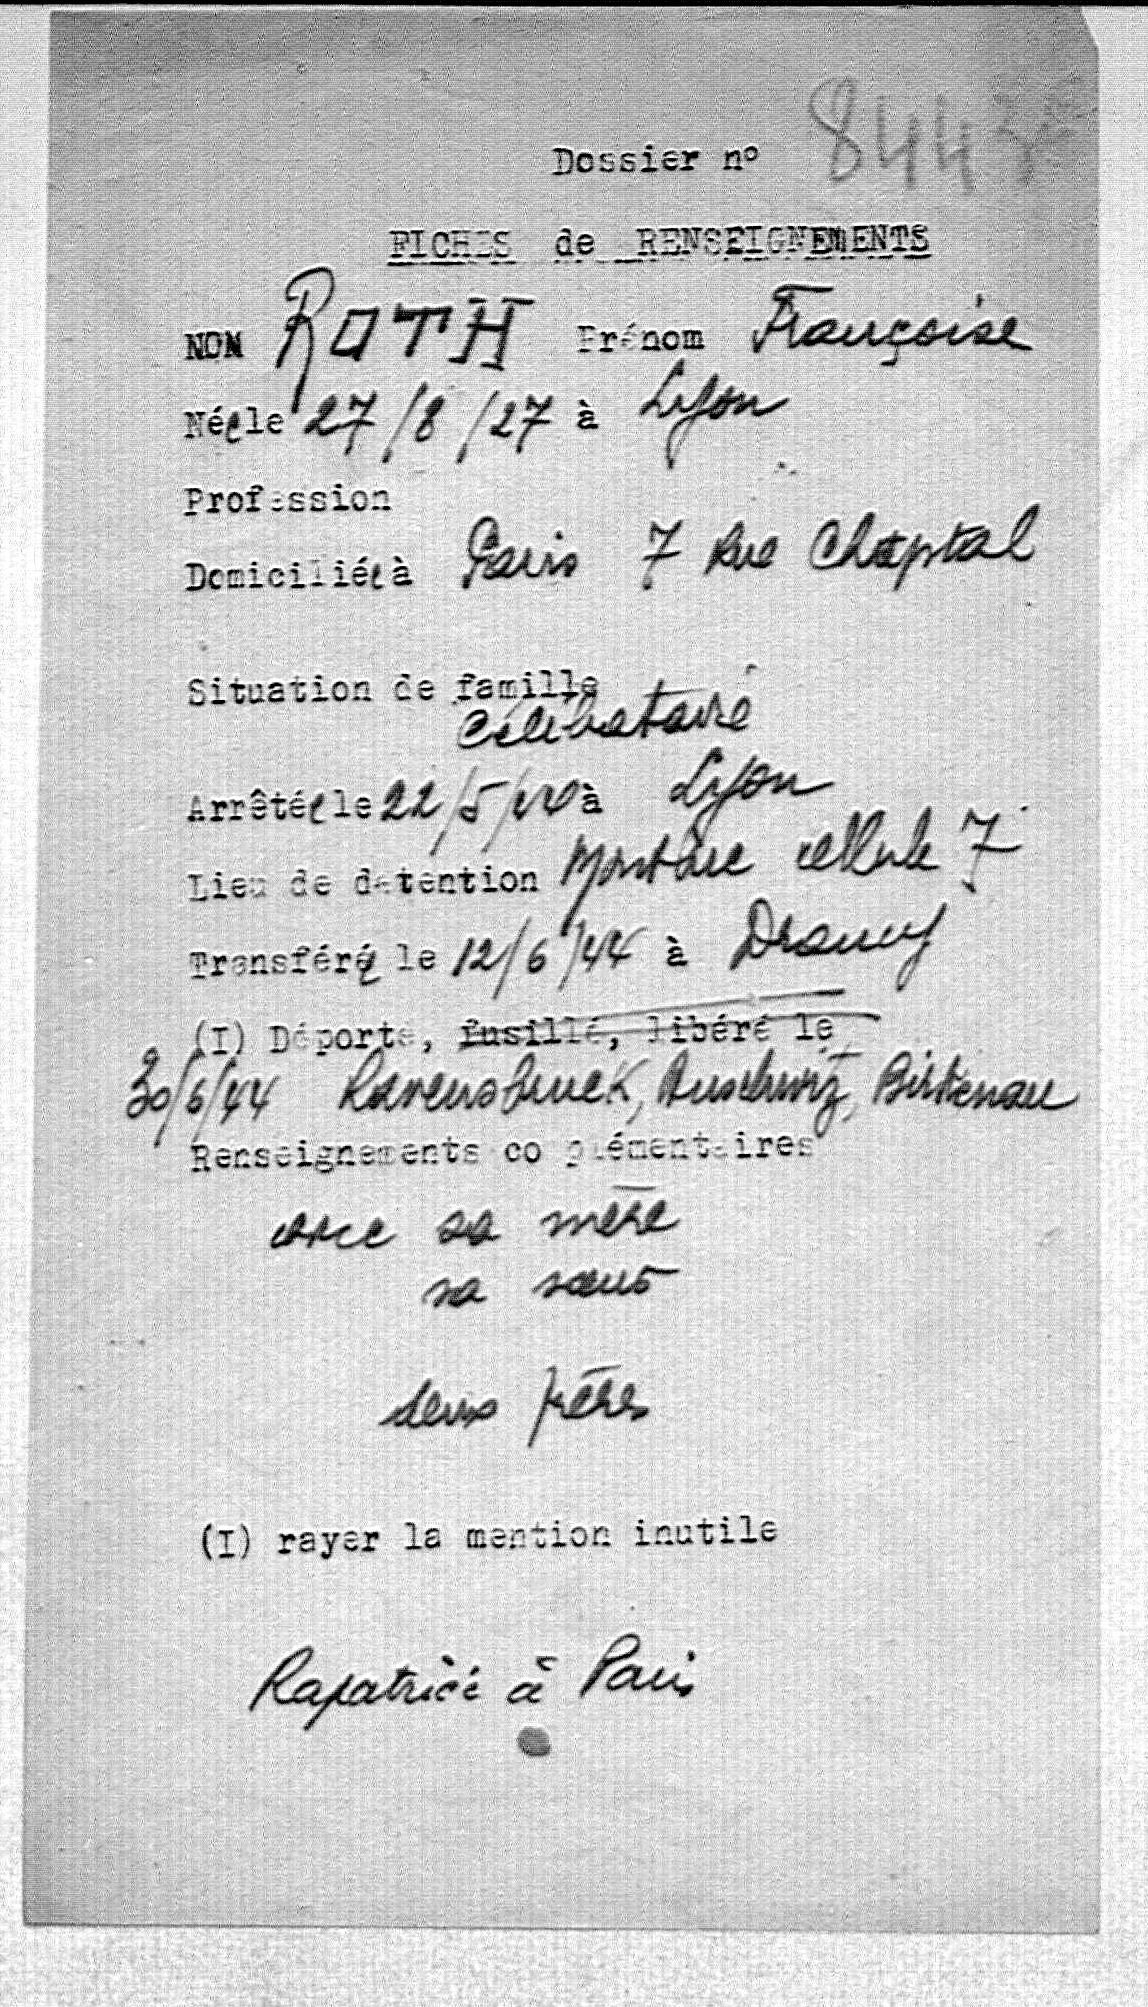 Dossier n° 8443
FICHES de RENSEIGNEMENTS
NOM ROTH Prénom Françoise
Née le 27/8/27 à Lyon
Profession
Domiciliée à Paris 7 rue Chaptal
Situation de famille
Célibataire
Arrêtée le 22/5/44 à Lyon
Lieu de détention Montluc cellule 7
Transférée le 12/6/44 à Drancy
(I) Déporté, fusillé, libéré le
30/6/44 Ravensbruck, Auschwitz, Birkenau
Renseignements complémentaires
avec sa mère
sa sœur
deux frères
(I) rayer la mention inutile
Rapatriée à Paris